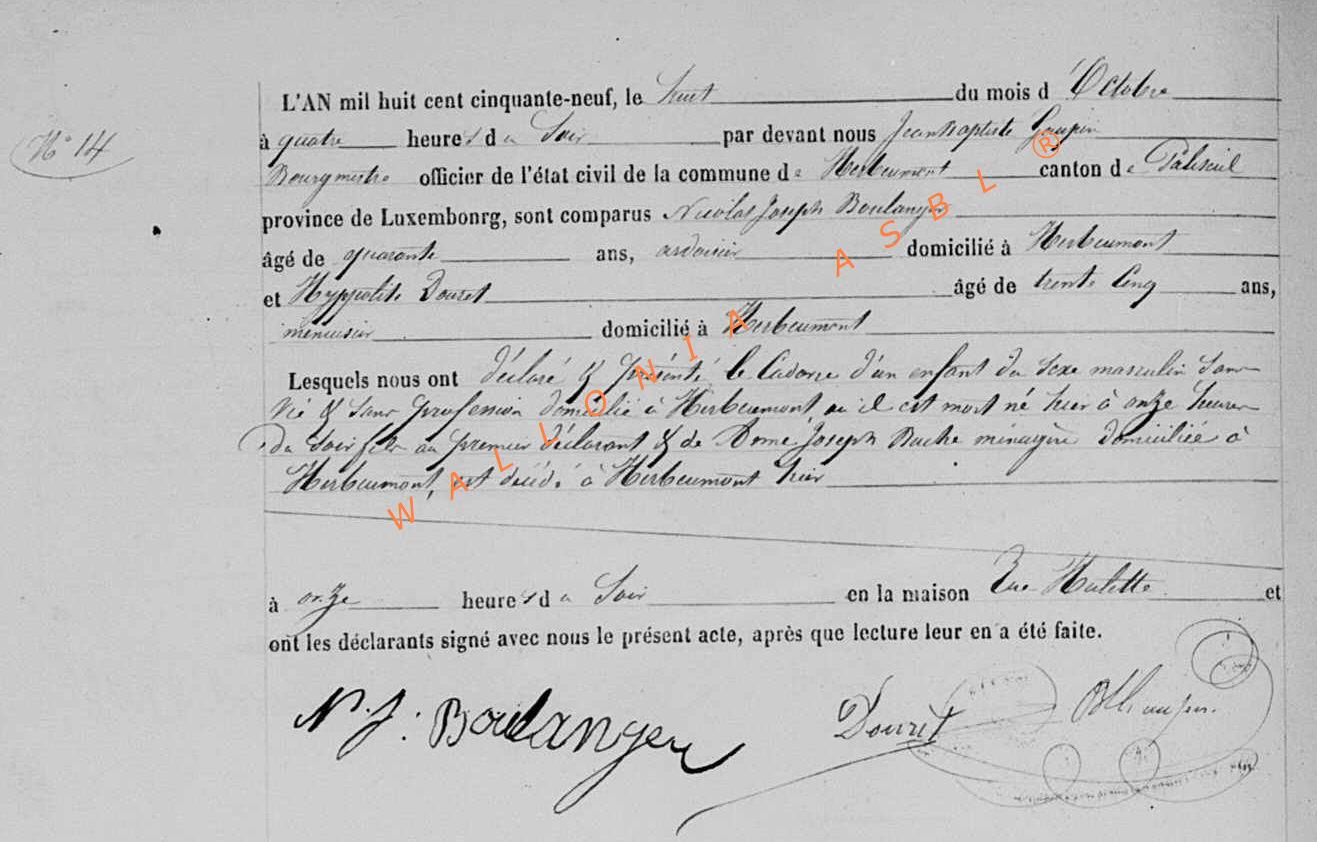 N° 14
L'AN mil huit cent cinquante-neuf, le huit du mois d'Octobre
à quatre heures du Soir par devant nous Jean Baptiste
Bourgmestre officier de l'état civil de la commune de Herbeumont canton de Paliseul
province de Luxembonrg, sont comparus Nicolas Joseph Boulanger
âgé de quarante ans, ardoisier domicilié à Herbeumont
et Hyppolite Douret âgé de trente Cinq ans,
menuisier domicilié à Herbeumont
Lesquels nous ont déclaré & présenté le Cadavre d'un enfant du Sexe masculin Sans
Vie & Sans profession domicilié à Herbeumont où il est mort né hier à onze heures
du Soir fils au premier déclarant & de Joseph ménagère domiciliée à
Herbeumont, est décédé à Herbeumont hier
à onze heures du Soir en la maison Rue Hulette et
ont les déclarants signé avec nous le présent acte, après que lecture leur en a été faite.
N. J: Boulanger Douret
WALLONIA ASBL ®